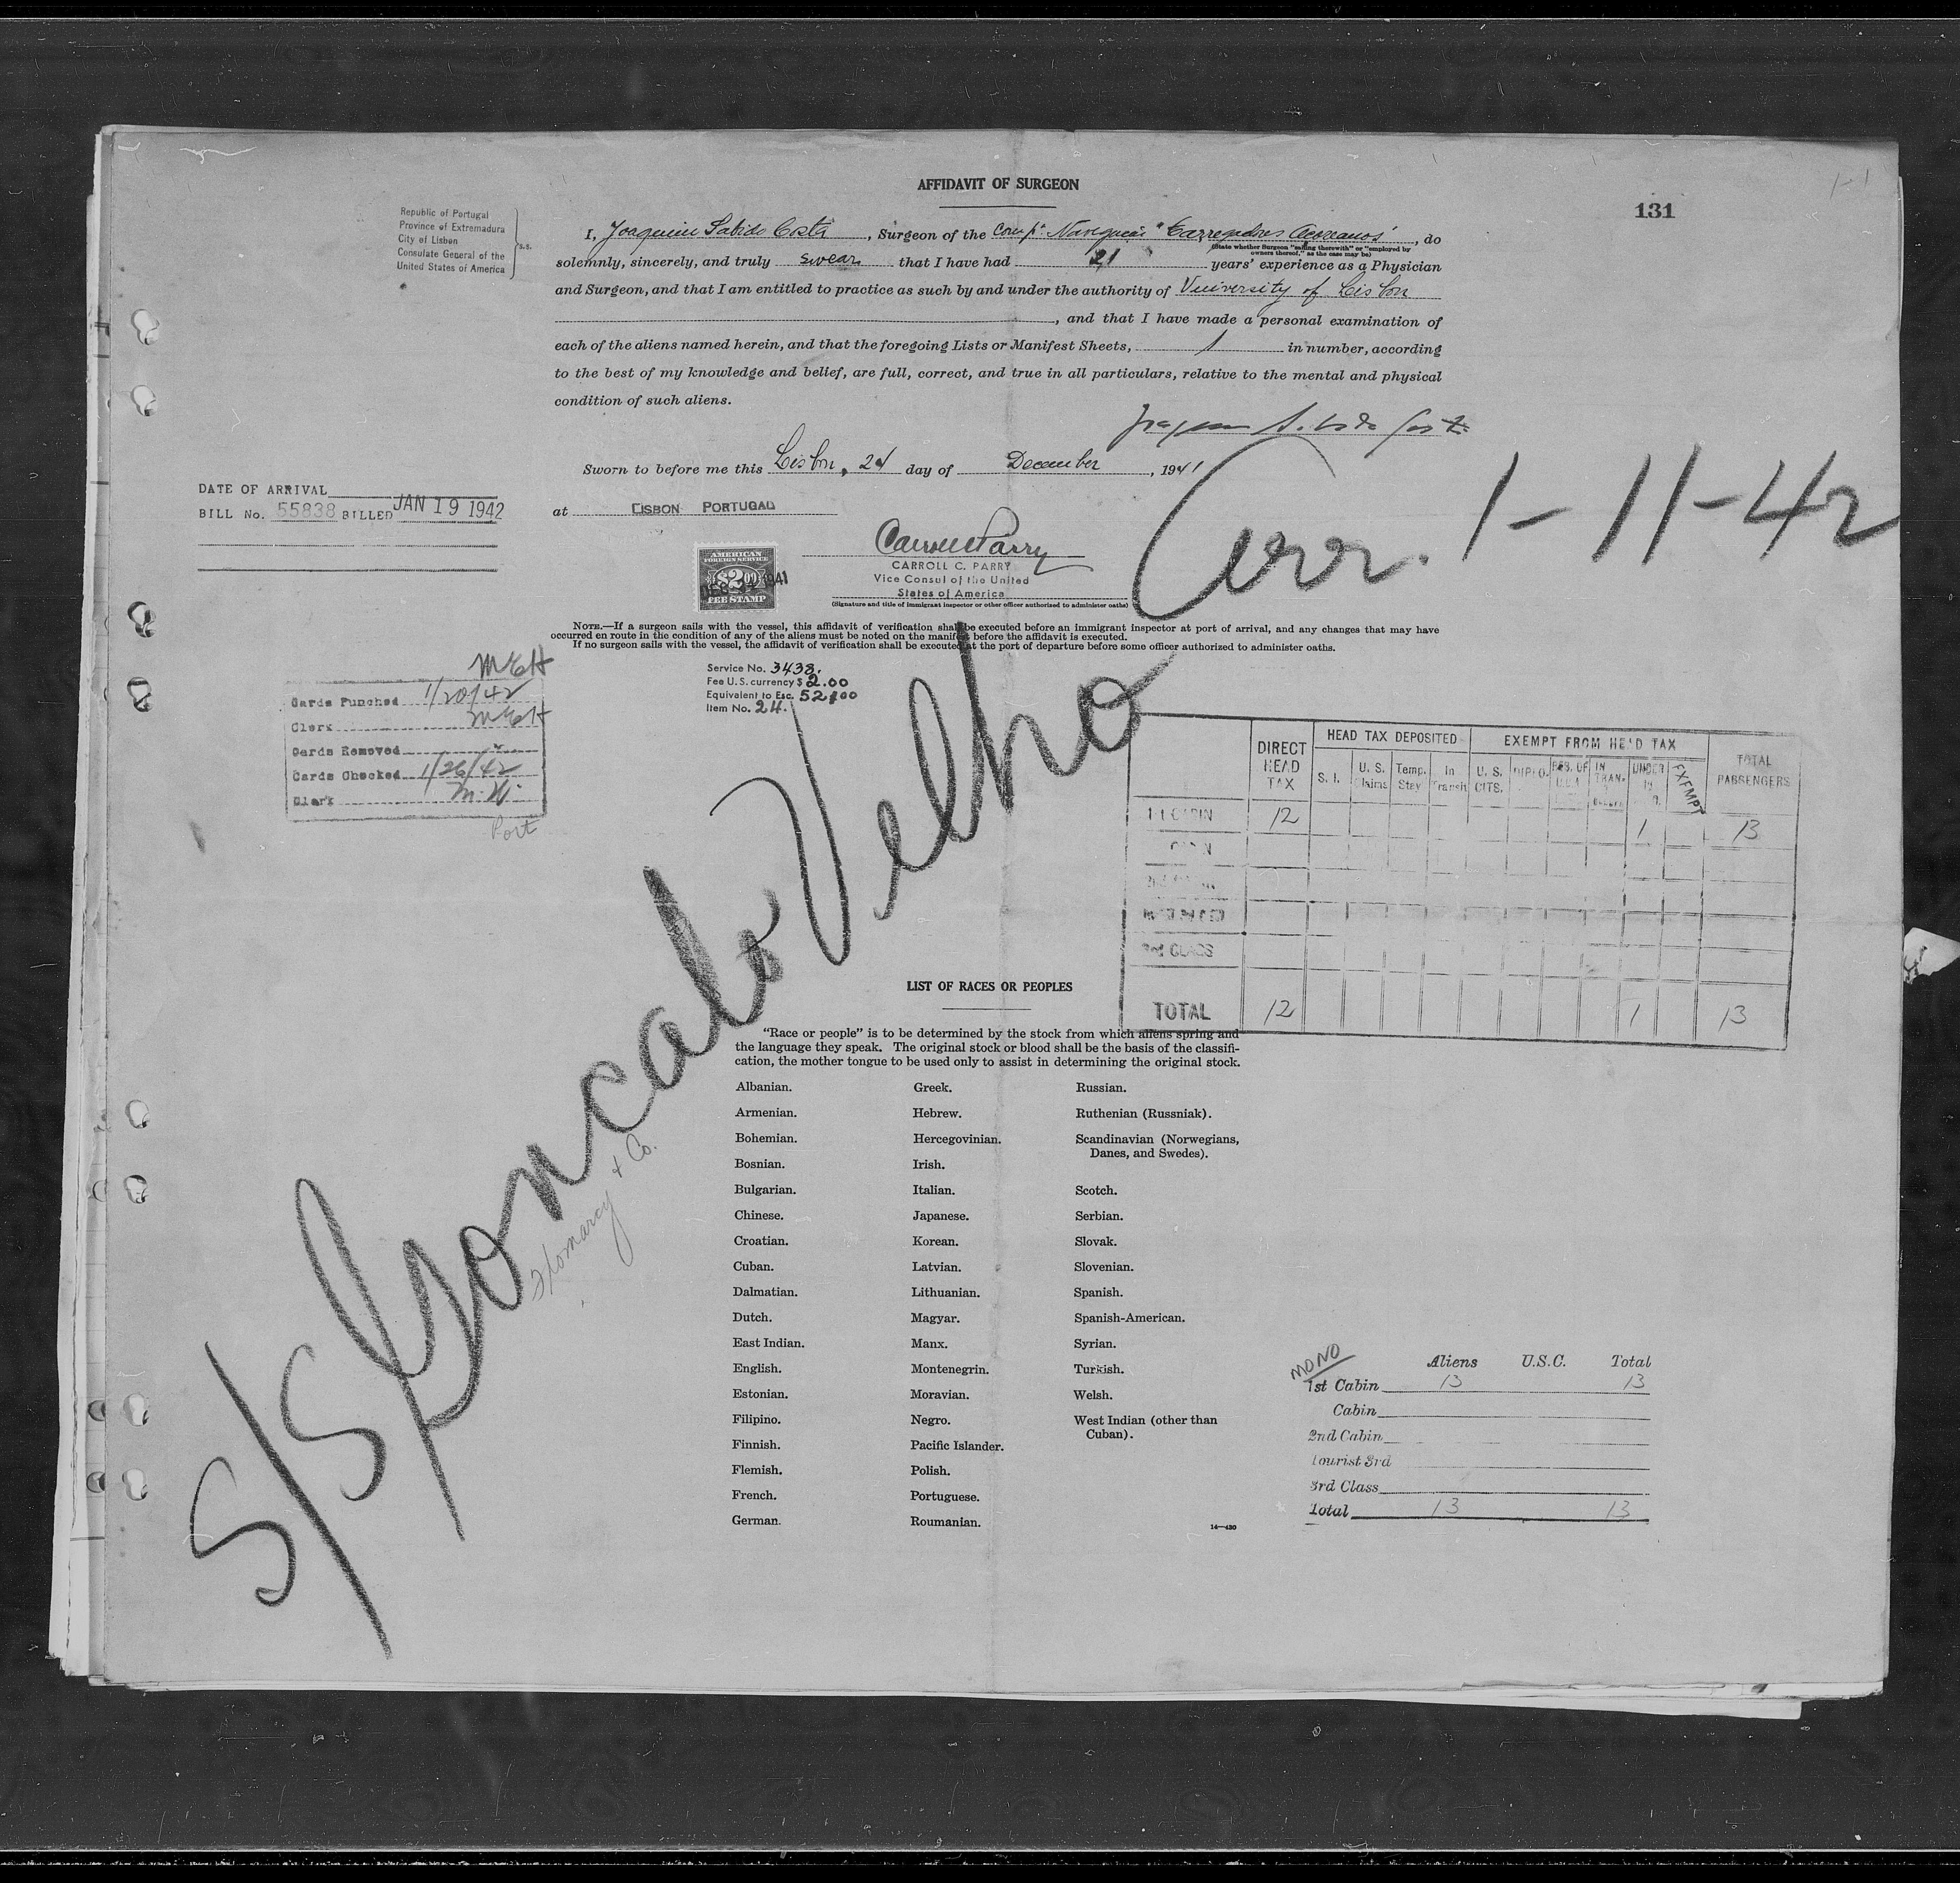 AFFIDAVIT OF SURGEON
131
1-1
Republic of Portugal
Province of Extremadura
City of Lisbon
Consulate General of the
United States of America
s.s.
I, Joaquim Sabido Costa, Surgeon of the Comp.ª Navegação "Carregadores Açoreanos", do
(State whether Surgeon "sailing therewith" or "employed by owners thereof," as the case may be)
solemnly, sincerely, and truly swear that I have had 21 years' experience as a Physician
and Surgeon, and that I am entitled to practice as such by and under the authority of University of Lisbon
, and that I have made a personal examination of
each of the aliens named herein, and that the foregoing Lists or Manifest Sheets, 1 in number, according
to the best of my knowledge and belief, are full, correct, and true in all particulars, relative to the mental and physical
condition of such aliens.
Sworn to before me this Lisbon, 24 day of December, 1941
at LISBON PORTUGAL
Arr. 1-11-42
DATE OF ARRIVAL
BILL No. 55838 BILLED JAN 19 1942
AMERICAN
FOREIGN SERVICE
$2.00
FEE STAMP
DEC 24 1941
Carroll C. Parry
CARROLL C. PARRY
Vice Consul of the United
States of America
(Signature and title of immigrant inspector or other officer authorized to administer oaths)
NOTE.—If a surgeon sails with the vessel, this affidavit of verification shall be executed before an immigrant inspector at port of arrival, and any changes that may have
occurred en route in the condition of any of the aliens must be noted on the manifest before the affidavit is executed.
If no surgeon sails with the vessel, the affidavit of verification shall be executed at the port of departure before some officer authorized to administer oaths.
Service No. 3438.
Fee U.S. currency $ 2.00
Equivalent to Esc. 52$00
Item No. 24.
Cards Punched 1/20/42
Clerk
Cards Removed
Cards Checked 1/26/42
Clerk
Port
S/S Goncalo Velho
& Co.
DIRECT HEAD TAX
HEAD TAX DEPOSITED
EXEMPT FROM HEAD TAX
TOTAL PASSENGERS
S. I. U. S. Claims Temp. Stay In Transit U. S. CITS. DIPLO. RES. OF U.S.A. IN TRAN. UNDER EXEMPT
1st CABIN 12 1 13
CABIN
3rd CLASS
TOTAL 12 1 13
LIST OF RACES OR PEOPLES
"Race or people" is to be determined by the stock from which aliens spring and
the language they speak. The original stock or blood shall be the basis of the classifi-
cation, the mother tongue to be used only to assist in determining the original stock.
Albanian.
Armenian.
Bohemian.
Bosnian.
Bulgarian.
Chinese.
Croatian.
Cuban.
Dalmatian.
Dutch.
East Indian.
English.
Estonian.
Filipino.
Finnish.
Flemish.
French.
German.
Greek.
Hebrew.
Hercegovinian.
Irish.
Italian.
Japanese.
Korean.
Latvian.
Lithuanian.
Magyar.
Manx.
Montenegrin.
Moravian.
Negro.
Pacific Islander.
Polish.
Portuguese.
Roumanian.
Russian.
Ruthenian (Russniak).
Scandinavian (Norwegians,
Danes, and Swedes).
Scotch.
Serbian.
Slovak.
Slovenian.
Spanish.
Spanish-American.
Syrian.
Turkish.
Welsh.
West Indian (other than
Cuban).
14—420
MONO
Aliens U.S.C. Total
1st Cabin 13 13
Cabin
2nd Cabin
Tourist 3rd
3rd Class
Total 13 13